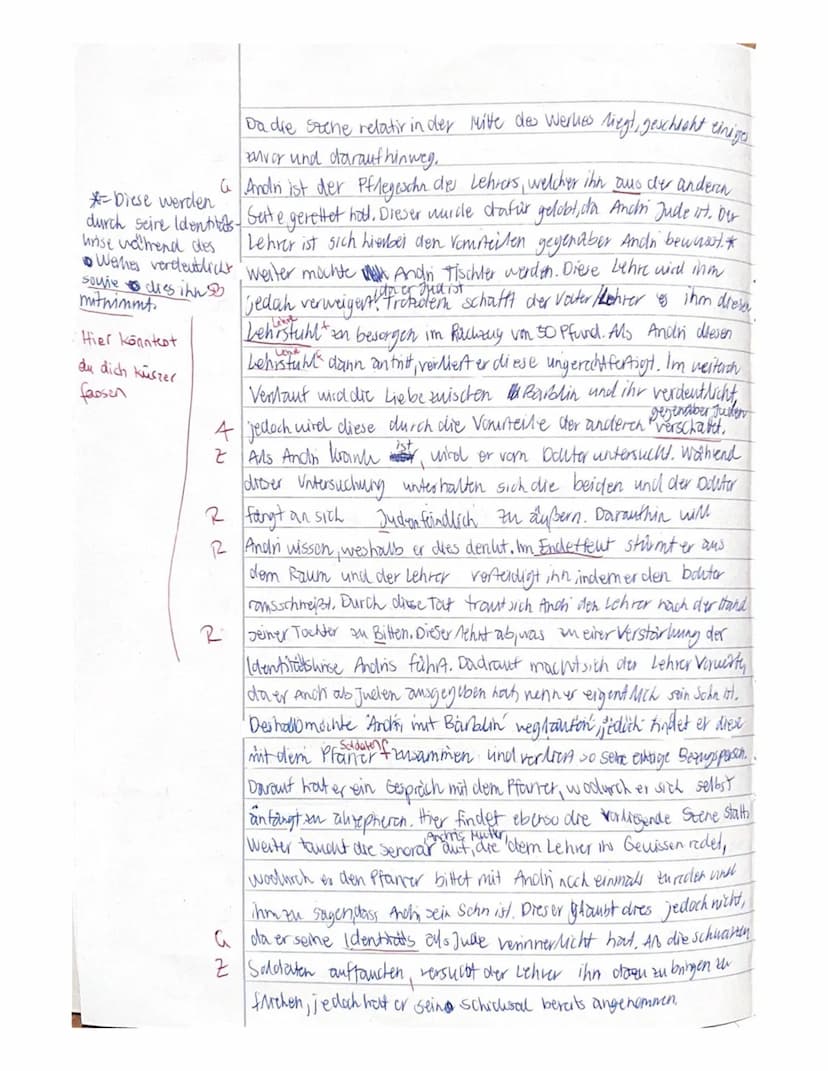 Da die Szene relativ in der Mitte des Werkes liegt, geschieht einiges
zuvor und daraufhinweg.
G
Andri ist der Pflegesohn des Lehrers, welcher ihn aus der anderen
Seite gerettet hat. Dieser wurde dafür gelobt, da Andri Jude ist. Der
Lehrer ist sich hierbei den Vorurteilen gegenüber Andri bewusst.*
*= Diese werden
durch seine Identitäts-
krise während des
Werkes verdeutlicht
sowie dies ihn Sb
mitnimmt.
Hier könntest
du dich kürzer
fassen
Weiter möchte Andri Tischler werden. Diese Lehre wird ihm
da er Jud ist
jedoch verweigert. Trotzdem schafft der Vater/Lehrer es ihm diesen
Lehrstuhl zu besorgen im Rückzug von 50 Pfund. Als Andri diesen
Lehrstuhl dann antritt, verliert er diese ungerechtfertigt. Im weiteren
Verlauf wird die Liebe zwischen Barblin und ihr verdeutlicht,
gegenüber Juden
A jedoch wird diese durch die Vorurteile der anderen
ist
Z Als Andri krank, wird er vom Doktor untersucht. Während
dieser Untersuchung unterhalten sich die beiden und der Doktor
R fängt an sich Judenfeindlich zu äußern. Daraufhin will
R Andri wissen, weshalb er dies denkt. Im Endeffeut stürmt er aus
dem Raum und der Lehrer verteidigt ihn indem er den Doktor
rausschmeißt. Durch diese Tat traut sich Andri den Lehrer nach der Hand
R seiner Tochter zu Bitten. Dieser lehnt ab, was zu einer Verstärkung der
Identitätskrise Andris führt. Dadraut macht sich der Lehrer Vorwürfe,
da er Andri als Juden ausgegeben hat, nenner eigentlich sein Sohn ist.
Deshalb möchte Andri mit Barblin weglaufen, jedoch findet er diese
Soldaten
mit dem Pfarrer zusammen und verliert so seine einzige Bezugsperson.
Darauf hat er ein Gespräch mit dem Pfarrer, wodurch er sich selbst
anfängt zu akzeptieren. Hier findet ebenso die vorliegende Szene statt.
Andris Mutter,
Weiter taucht die Senora auf, die dem Lehrer ins Gewissen redet,
wodurch er den Pfarrer bittet mit Andri noch einmals zu reden und
ihm zu sagen, dass Andri sein Sohn ist. Dieser glaubt dies jedoch nicht,
G da er seine Identitäts als Jude verinnerlicht hat. Als die schwarzen
Z Soldaten auftauchen, versucht der Lehrer ihn dazu zu bringen zu
fliehen, jedoch hat er sein Schicksal bereits angenommen.